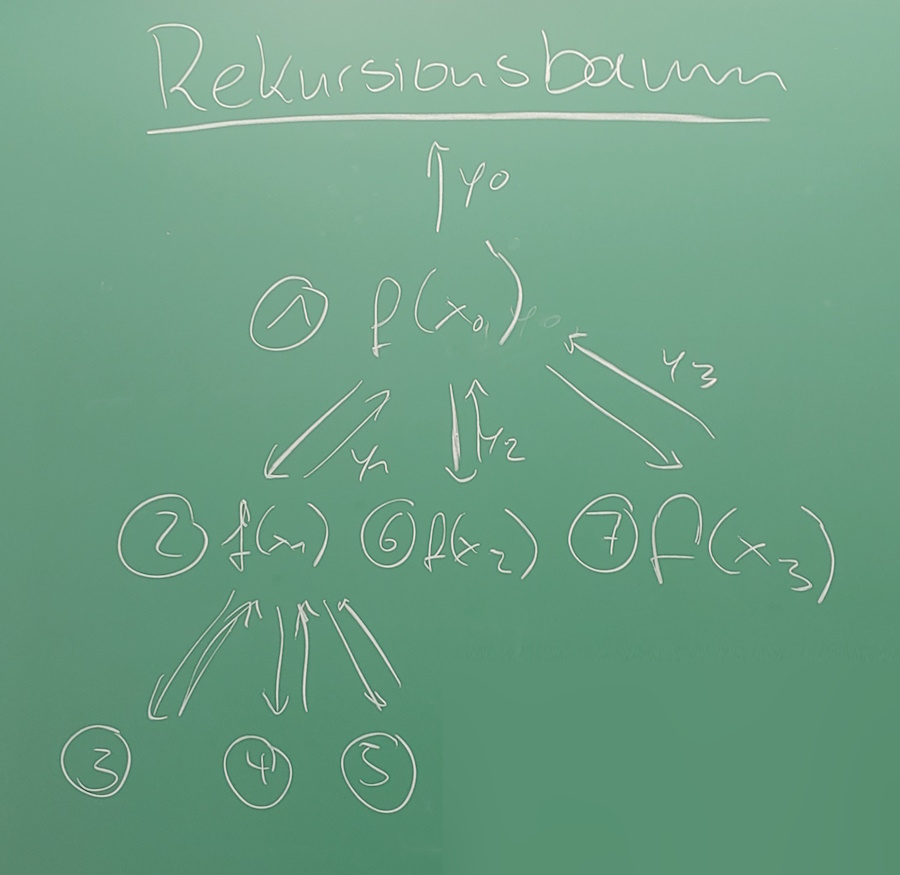 Rekursionsbaum
y0
① f(x₀)
y₃
y₁ y₂
② f(x₁) ⑥ f(x₂) ⑦ f(x₃)
③ ④ ⑤